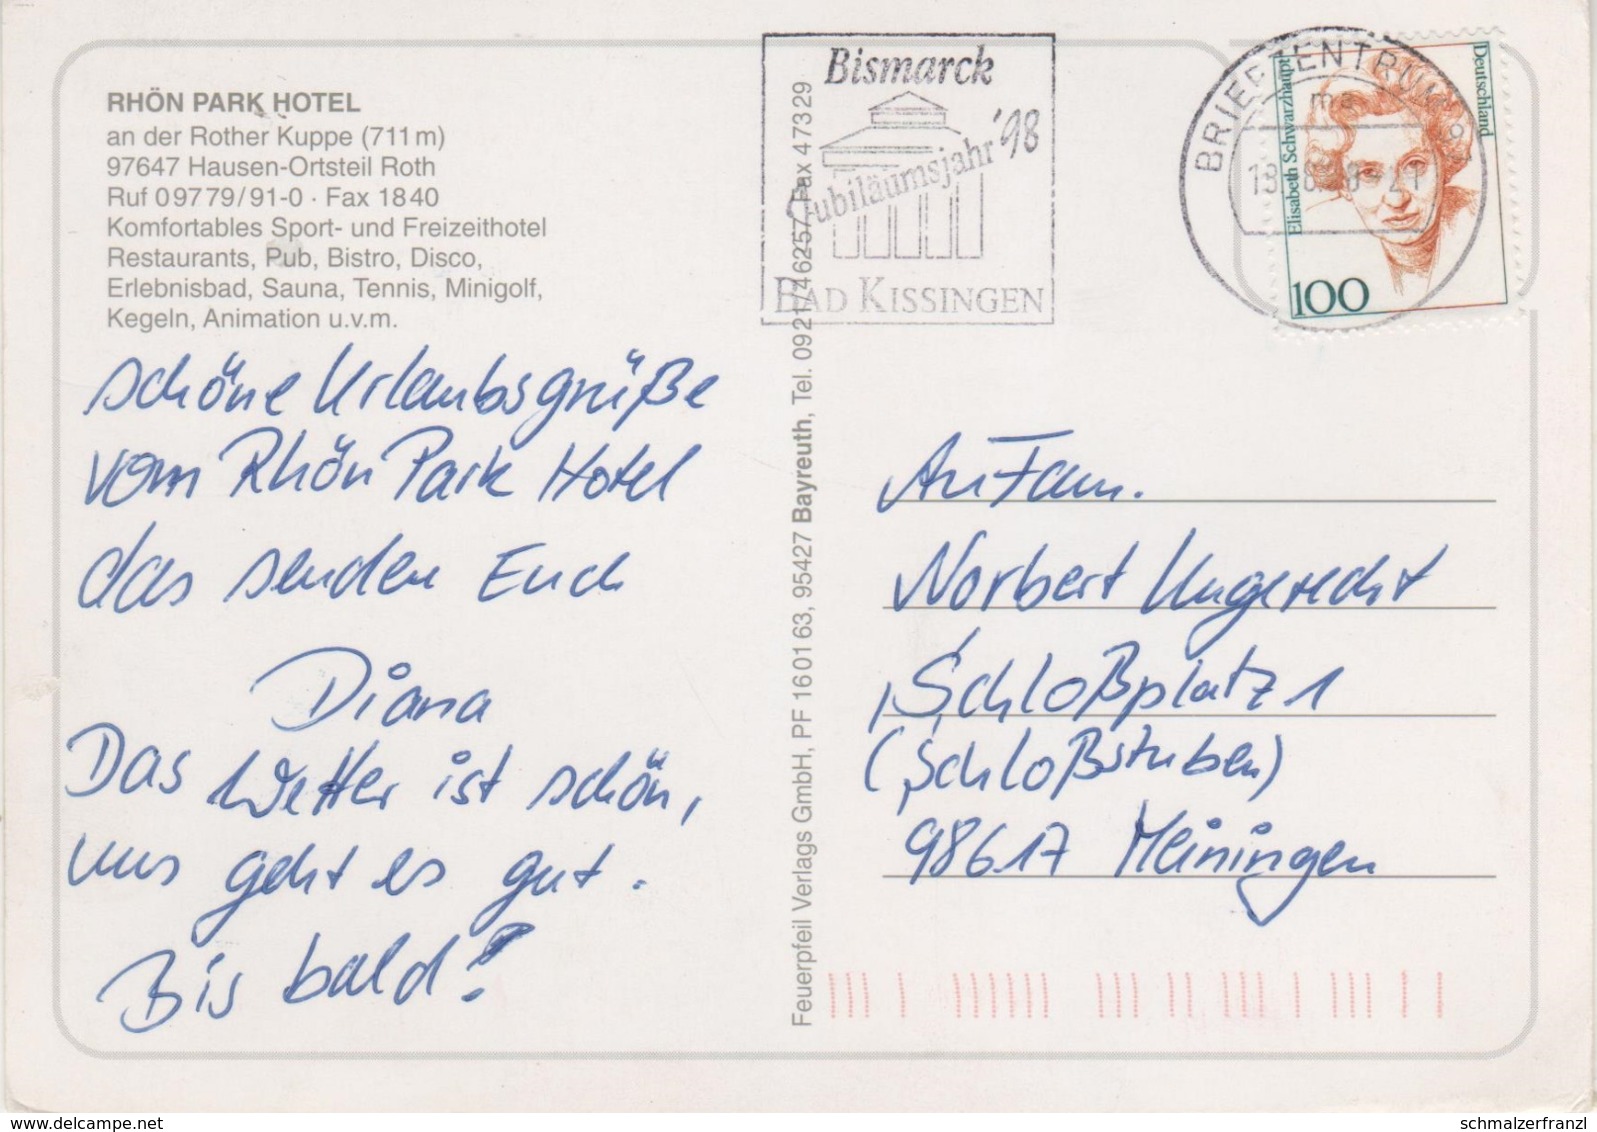 RHÖN PARK HOTEL
an der Rother Kuppe (711 m)
97647 Hausen-Ortsteil Roth
Ruf 0 97 79/ 91-0 · Fax 18 40
Komfortables Sport- und Freizeithotel
Restaurants, Pub, Bistro, Disco,
Erlebnisbad, Sauna, Tennis, Minigolf,
Kegeln, Animation u.v.m.
schöne Urlaubsgrüße
vom Rhön Park Hotel
das senden Euch
Diana
Das Wetter ist schön,
uns geht es gut.
Bis bald!
Feuerpfeil Verlags GmbH, PF 16 01 63, 95427 Bayreuth, Tel. 09 21/7 46 25 7/ Fax 4 73 29
Bismarck
Jubiläumsjahr '98
BAD KISSINGEN
BRIEFZENTRUM
Elisabeth Schwarzhaupt
Deutschland
100
An Fam.
Norbert Ungerecht
Schloßplatz 1
(Schloßstuben)
98617 Meiningen
www.delcampe.net
schmalzerfranzl